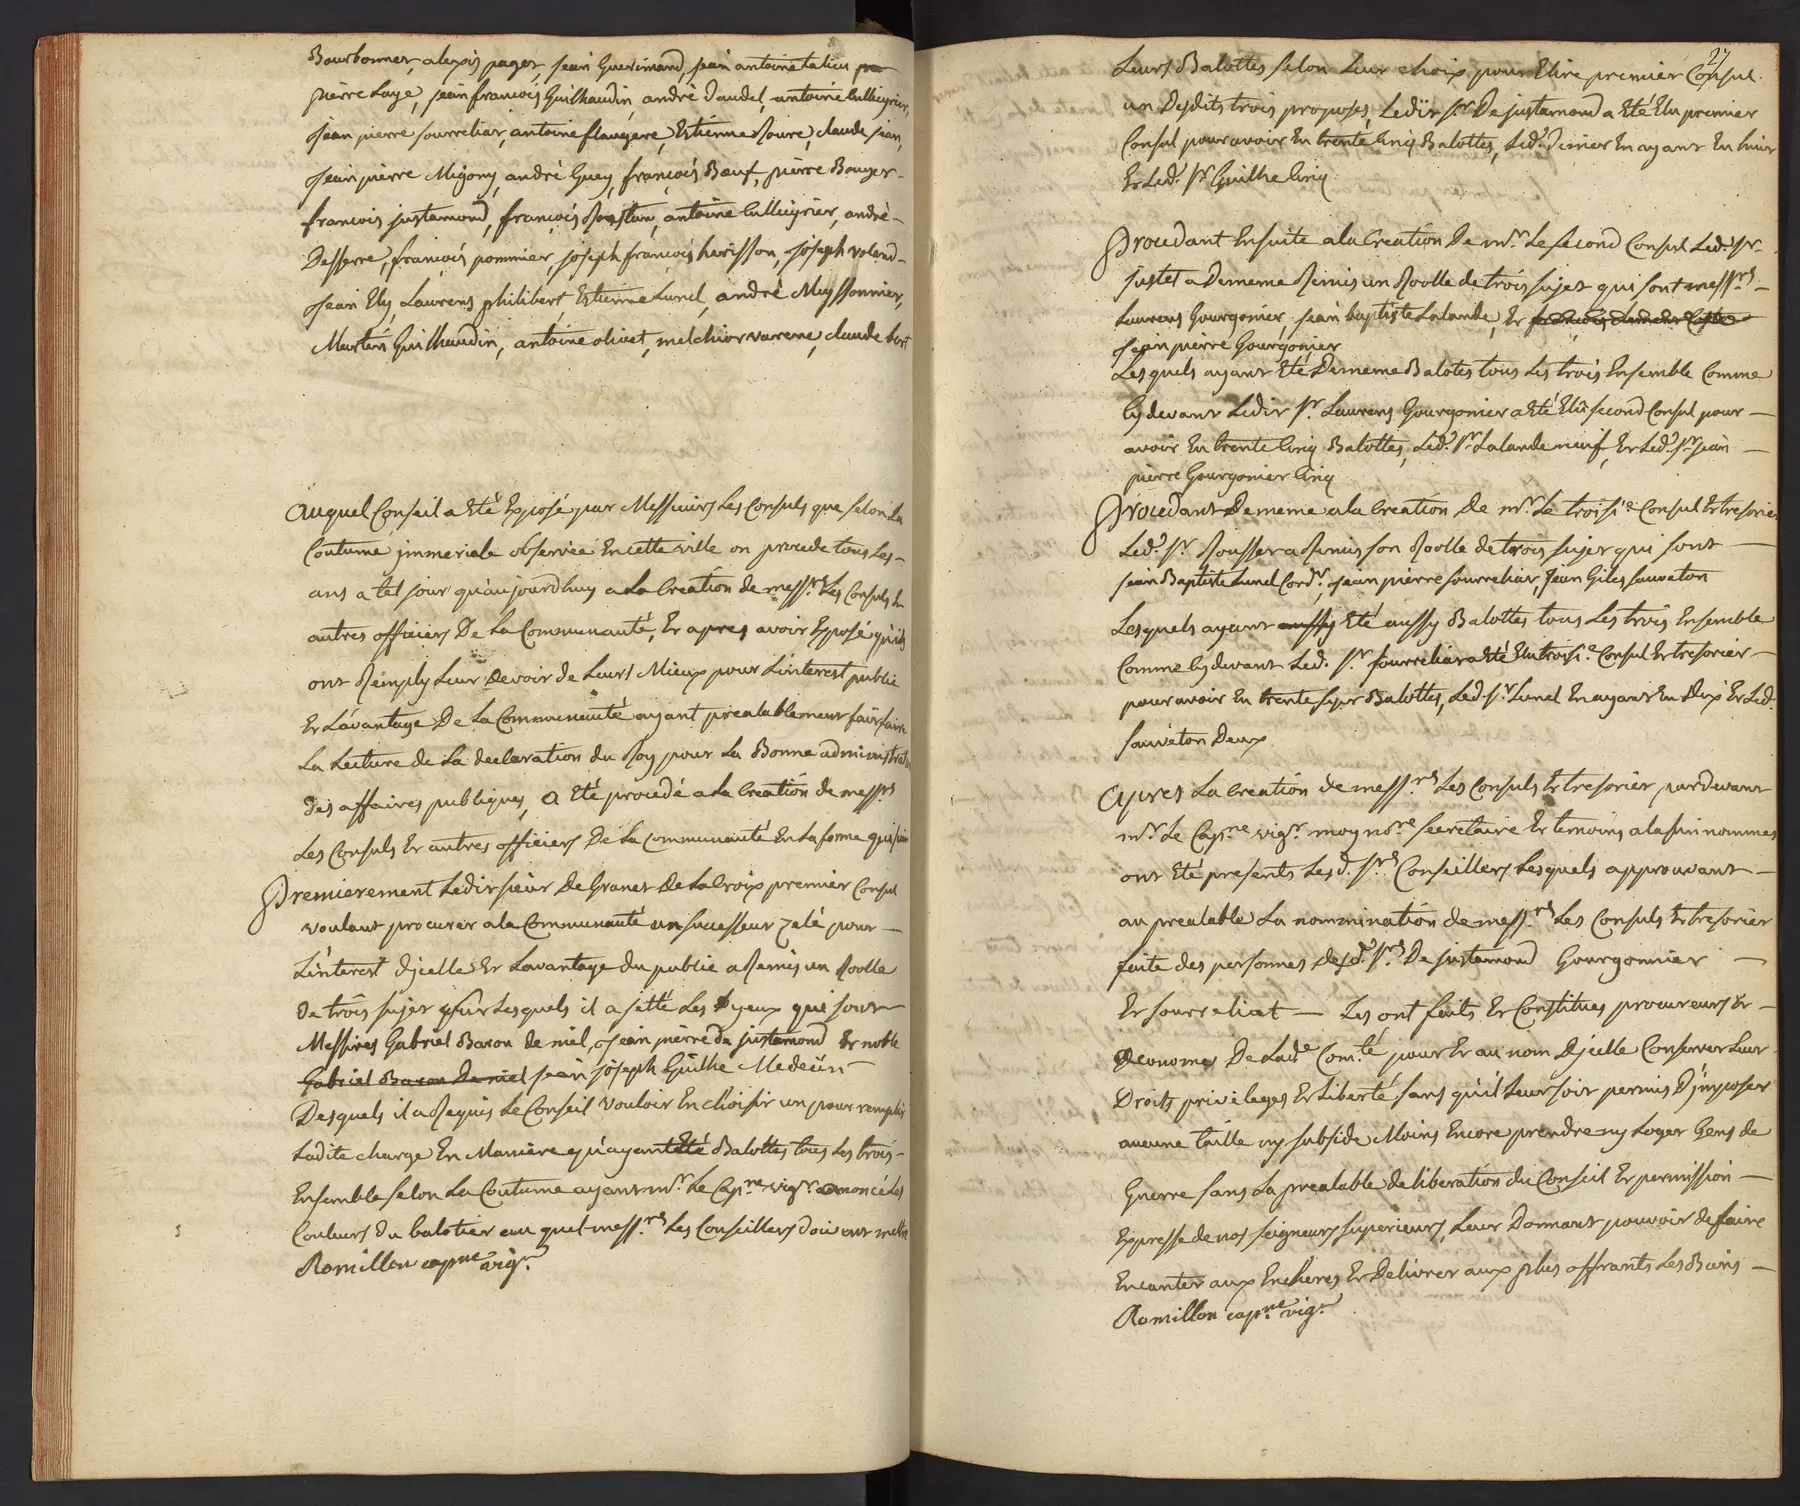 Bourbonnet, alexis pager, jean Guerimand, jean antoine talieu
pierre Laye, jean francois Guilhaudin, andré Daudel, antoine Cullieyrier,
jean pierre sourreliac, antoine flaugere, Estienne Roure, claude jean,
jean pierre Migony, andré Guey, françois Bœuf, pierre Bouyer
francois justamond, françois Rostan, antoine Cullieyrier, andré
Desserre, françois pommier, joseph francois herisson, joseph voland
jean Ely, Laurens philibert, Estienne Lunel, andré Meyssonnier,
Martin Guilhaudin, antoine olivet, melchior varene, claude bert
Auquel Conseil a Eté Exposé par Messieurs Les Consuls que selon La
Coutume jmmeriale observée En cette ville on procede tous Les
ans a tel jour qu'aujourdhuy a La Creation de mess.rs Les Consuls Eu
autres officiers De La Communauté, Et apres avoir Exposé qu'ils
ont Remply Leur Devoir de Leurs Mieux pour L'interest public
Et L'avantage De La Communauté ayant prealablement fait faire
La Lecture de La declaration du Roy pour La Bonne administra
des affaires publiques, a Eté procedé a La Creation de mess.rs
Les Consuls Et autres officiers De La Communauté En La forme qui suit
Premierement Ledit sieur De Granet De Lacroix premier Consul
voulant procurer a la Communauté un successeur zelé pour
L'interest D'jcelle Et L'avantage du public a Remis un Roolle
de trois sujet sur Lesquels il a jetté Les yeux qui sont
Messires Gabriel Baron de niel, jean pierre de justamond Et noble
Gabriel Baron De niel jean joseph Guilhe Medecin
Desquels il a Requis Le Conseil vouloir En choisir un pour remplir
Ladite charge En Maniere qu'ayant Eté Balottes tous Les trois
Ensemble selon La Coutume ayant m.r Le Cap.ne vig.r anoncé Les
Couleurs du balotier au quel mess.rs Les Conseillers doivent mettre
Romillon cap.ne vig.r
27
Leurs Balottes selon Leur choix pour Elire premier Consul
un Desdits trois proposes, Ledit s.r De justamond a Eté Elu premier
Consul pour avoir Eu trente Cinq Balottes, Led.t De niel En ayant Eu huit
Et Led.t s.r Guilhe Cinq
Procedant Ensuite a la Creation De m.r Le second Consul Led.t s.r
justet a De meme Remis un Roolle de trois sujet qui sont mess.rs
Laurens Gourgonier, jean baptiste Lalande, Et
jean pierre Gourgonier
Lesquels ayant Eté De meme Balotes tous Les trois Ensemble Comme
Cy devant Ledit s.r Laurens Gourgonier a Eté Elû second Consul pour
avoir Eu trente Cinq Balottes, Led.t s.r Lalande neuf, Et Led.t s.r jean
pierre Gourgonier Cinq
Procedant De meme a la Creation De m.r Le troisi.e Consul Et tresorier
Led.t s.r Rousset a Remis son Roolle de trois sujet qui sont
jean Baptiste Lunel Cord.r, jean pierre sourreliac, Jean Giles sauveton
Lesquels ayant aussy Eté aussy Balottes tous Les trois Ensemble
Comme Cy devant Led. s.r sourreliac a Eté Elu troisi.e Consul Et tresorier
pour avoir Eu trente sept Balottes, Led. s.r Lunel En ayant Eu Dix Et Led.
sauveton Deux
Apres La Creation de mess.rs Les Consuls Et tresorier pardevant
m.r Le Cap.ne vig.r moy no.re secretaire Et temoins a la fin nommes
ont Eté presents Lesd. s.rs Conseillers Lesquels approuvant
au prealable La nommination de mess.rs Les Consuls Et tresorier
faite des personnes desd.ts s.rs De justamond Gourgonnier
Et sourreliat Les ont faits Et Constitues procureurs Et
Œconomes De Lad.e Com.té pour Et au nom D'jcelle Conserver Leur
Droits privileges Et Liberté sans qu'il Leur soit permis D'jmposer
aucune taille ny subside Moins Encore prendre ny Loger Gens de
Guerre sans La prealable deliberation du Conseil Et permission
Expresse de nos seigneurs superieurs, Leur Donnant pouvoir de faire
Encanter aux Encheres Et Delivrer aux plus offrants Les Baris
Romillon cap.ne vig.r